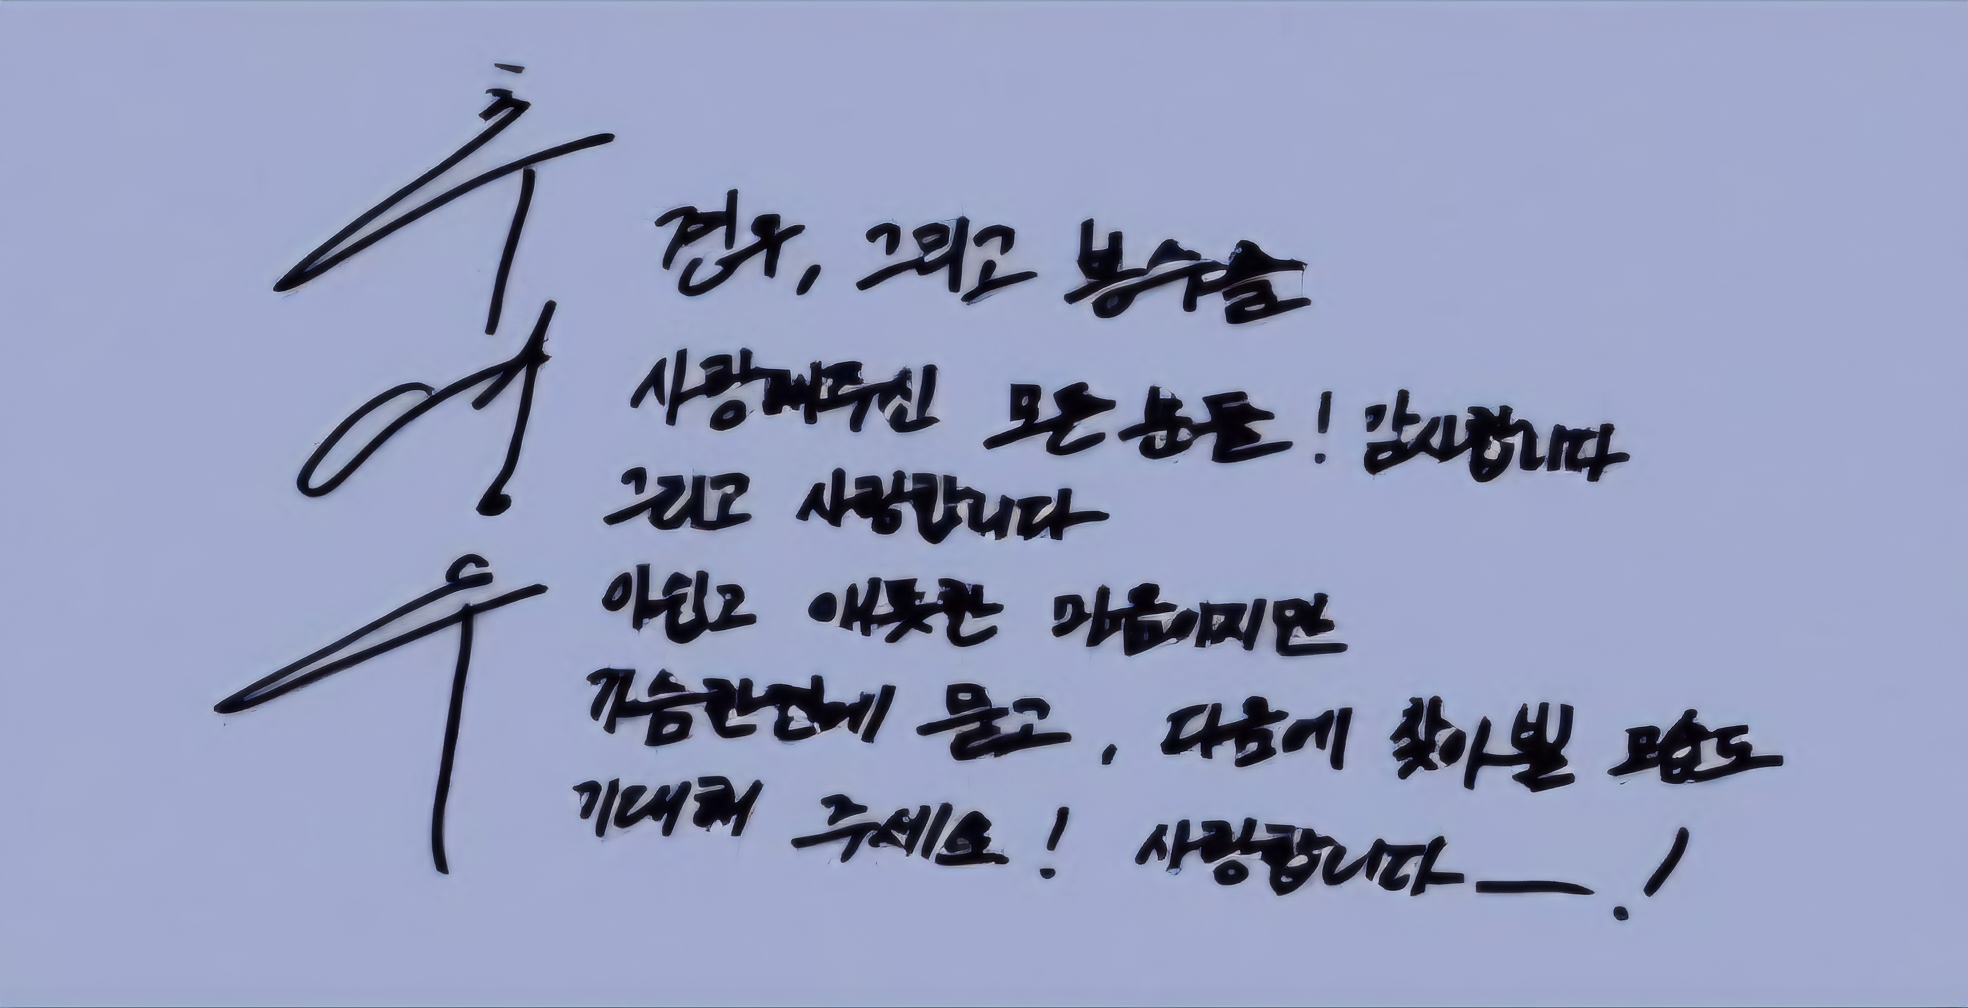 추영우
견우, 그리고 봉수를
사랑해주신 모든 분들! 감사합니다
그리고 사랑합니다
아쉽고 애틋한 마음이지만
가슴한켠에 묻고, 다음에 찾아뵐 모습도
기대해 주세요! 사랑합니다—!